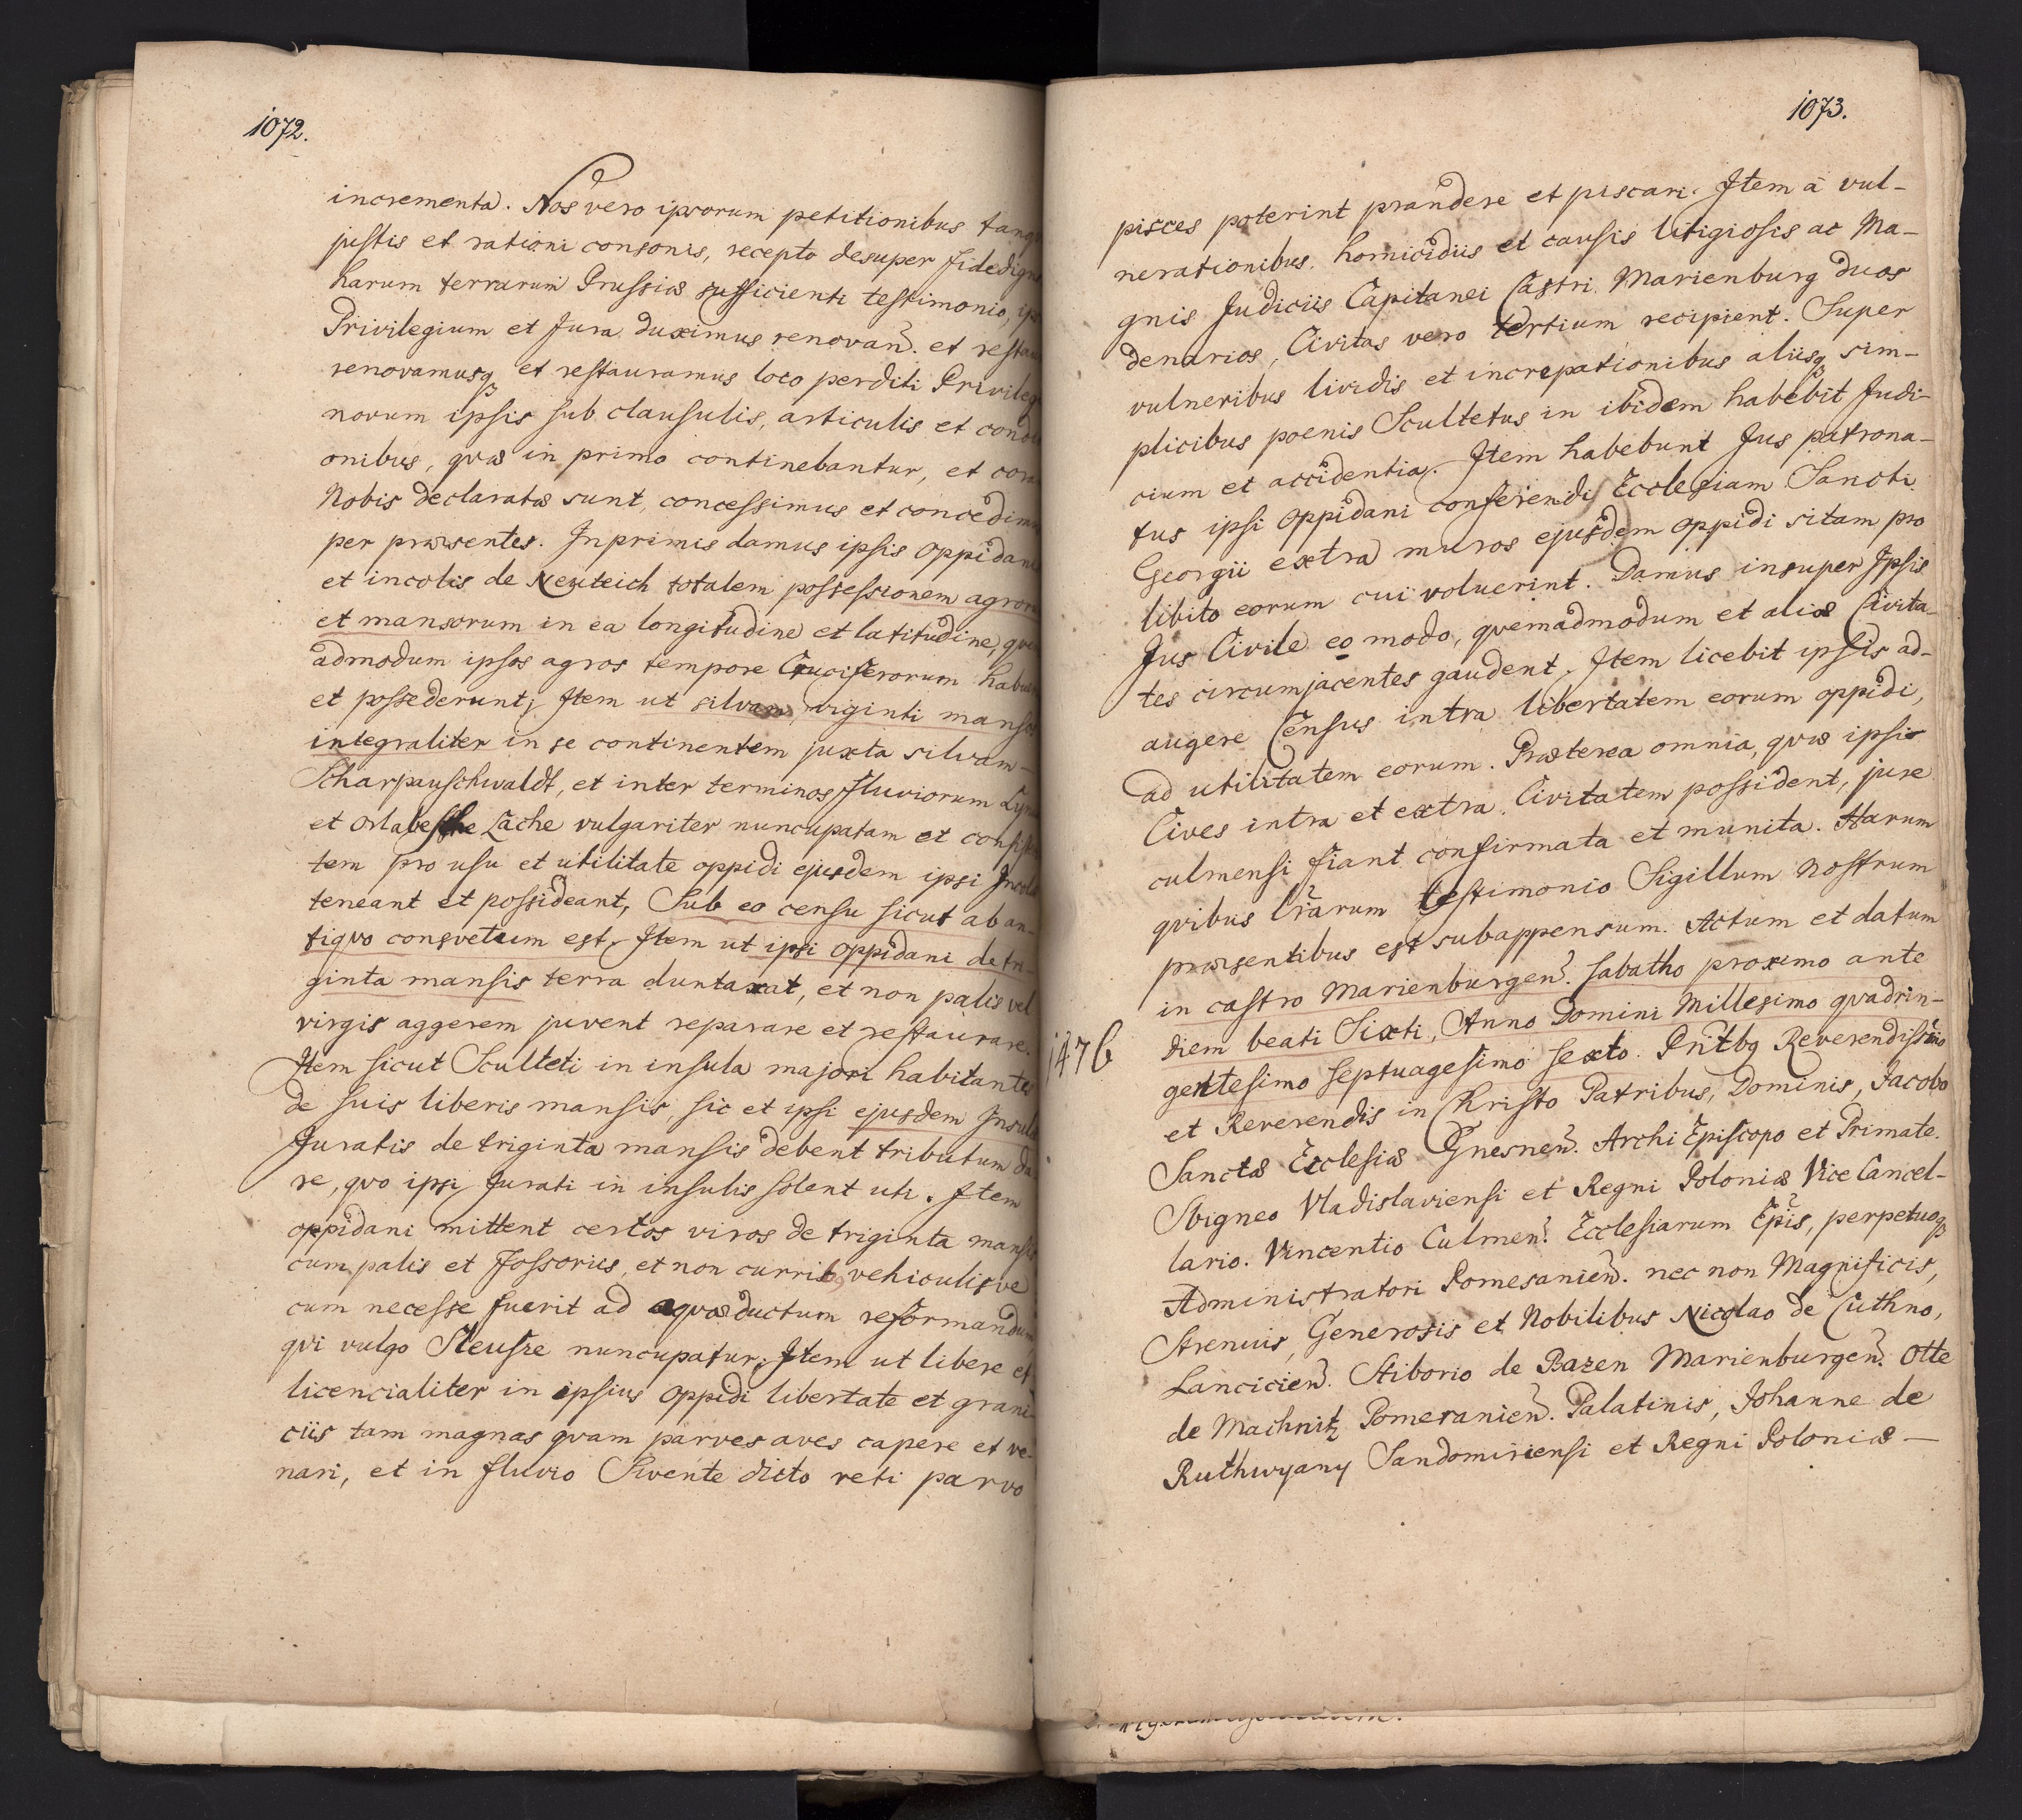 1072.
incrementa. Nos vero ipsorum petitionibus tanq
justis et rationi consonis, recepto desuper fidedign
harum terrarum Prussiæ sufficienti testimonio, ip
Privilegium et Jura duximus renovañ. et resta
renovamusq et restauramus loco perditi Privileg
novum ipsis sub clausulis, articulis et condi
onibus, quæ in primo continebantur, et cor
Nobis declaratæ sunt, concessimus et concedim
per præsentes. Inprimis damus ipsis oppidani
et incolis de Neuteich totalem possessionem agror
et mansorum in ea longitudine et latitudine, que
admodum ipsos agros tempore Cruciferorum habu
et possederunt; Item ut silvam, viginti manso
integraliter in se continentem juxta silvam
Scharpauschwaldt, et inter terminos fluviorum Lyn
et Lache vulgariter nuncupatam et consist
tem pro usu et utilitate oppidi ejusdem ipsi Incolæ
teneant et possideant, Sub eo censu sicut ab an-
tiqvo consvetum est, Item ut ipsi oppidani de tri-
ginta mansis terra duntaxat, et non palis vel
virgis aggerem juvent reparare et restaurare.
Item sicut Sculteti in insula majori habitantes
de suis liberis mansis, sic et ipsi ejusdem Insulæ
Juratis de triginta mansis debent tributum da
re, qvo ipsi Jurati in insulis solent uti. Item
oppidani mittent certos viros de triginta mansis
cum palis et fossoriis, et non currib9 vehiculisve
cum necesse fuerit ad aqvæductum reformandum
qvi vulgo Sleusze nuncupatur; Item ut libere et
licencialiter in ipsius oppidi libertate et grani-
ciis tam magnas qvam parves aves capere et ve-
nari, et in fluvio Swente dicto reti parvo
1073.
pisces poterint prandere et piscari. Item à vul-
nerationibus, homicidiis et causis litigiosis ac Ma-
gnis Judiciis Capitanei Castri Marienburg duos
denarios, Civitas vero tertium recipient. Super
vulneribus lividis et increpationibus aliisq sim-
plicibus poenis Scultetus in ibidem habebit Judi-
cium et accidentia. Item habebunt Jus patrona-
tus ipsi oppidani conferendi Ecclesiam Sancti
Georgii extra muros ejusdem oppidi sitam pro
libito eorum cui voluerint. Damus insuper Ipsis
Jus Civile eo modo, quemadmodum et aliæ Civita-
tes circumjacentes gaudent. Item licebit ipsis ad-
augere Census intra libertatem eorum oppidi,
ad utilitatem eorum. Præterea omnia, qvæ ipsi
Cives intra et extra Civitatem possident, jure
culmensi fiant confirmata et munita. Harum
qvibus Lr̃arum testimonio Sigillum Nostrum
præsentibus est subappensum. Actum et datum
in castro Marienburgeñ. sabatho proximo ante
diem beati Sixti, Anno Domini Millesimo qvadrin-
1476
gentesimo septuagesimo sexto. Pñtbq Reverendissimo
et Reverendis in Christo Patribus, Dominis, Jacobo
Sanctæ Ecclesiæ Gnesneñ. Archi Episcopo et Primate.
Sbigneo Vladislaviensi et Regni Poloniæ Vice Cancel-
lario. Vincentio Culmeñ. Ecclesiarum Ep̃is, perpetuoq
Administratori Pomesanieñ. nec non Magnificis,
Strenuis, Generosis et Nobilibus Nicolao de Cuthno,
Lancicieñ. Stiborio de Bazen Marienburgeñ. Otte
de Machnitz Pomeranieñ. Palatinis, Johanne de
Ruthwyany Sandomiriensi et Regni Poloniæ —